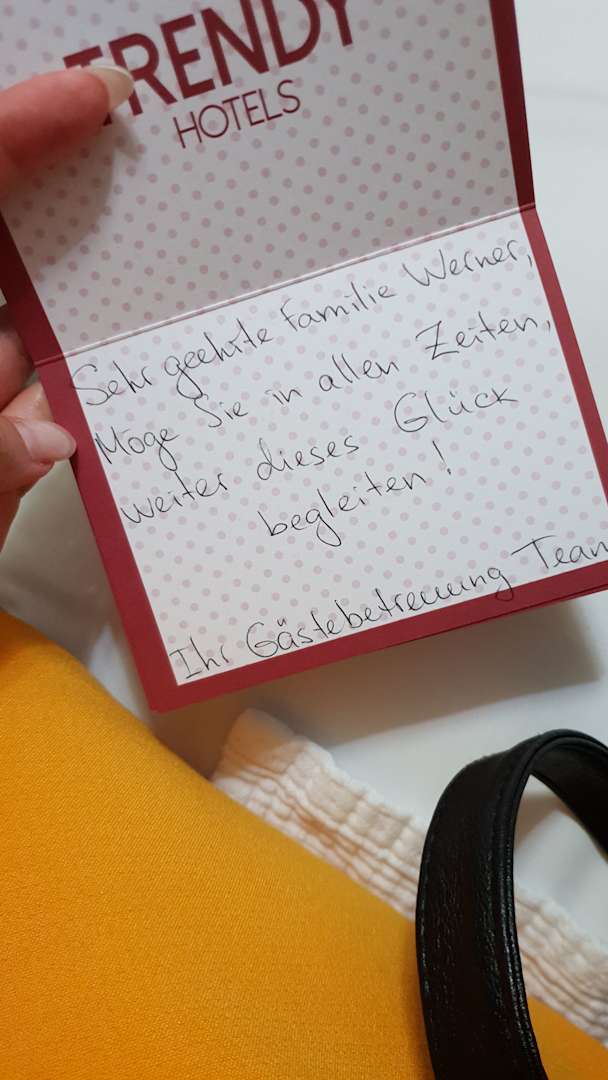 TRENDY
HOTELS
Sehr geehrte Familie Werner,
Möge Sie in allen Zeiten,
weiter dieses Glück
begleiten!
Ihr Gästebetreuung Team